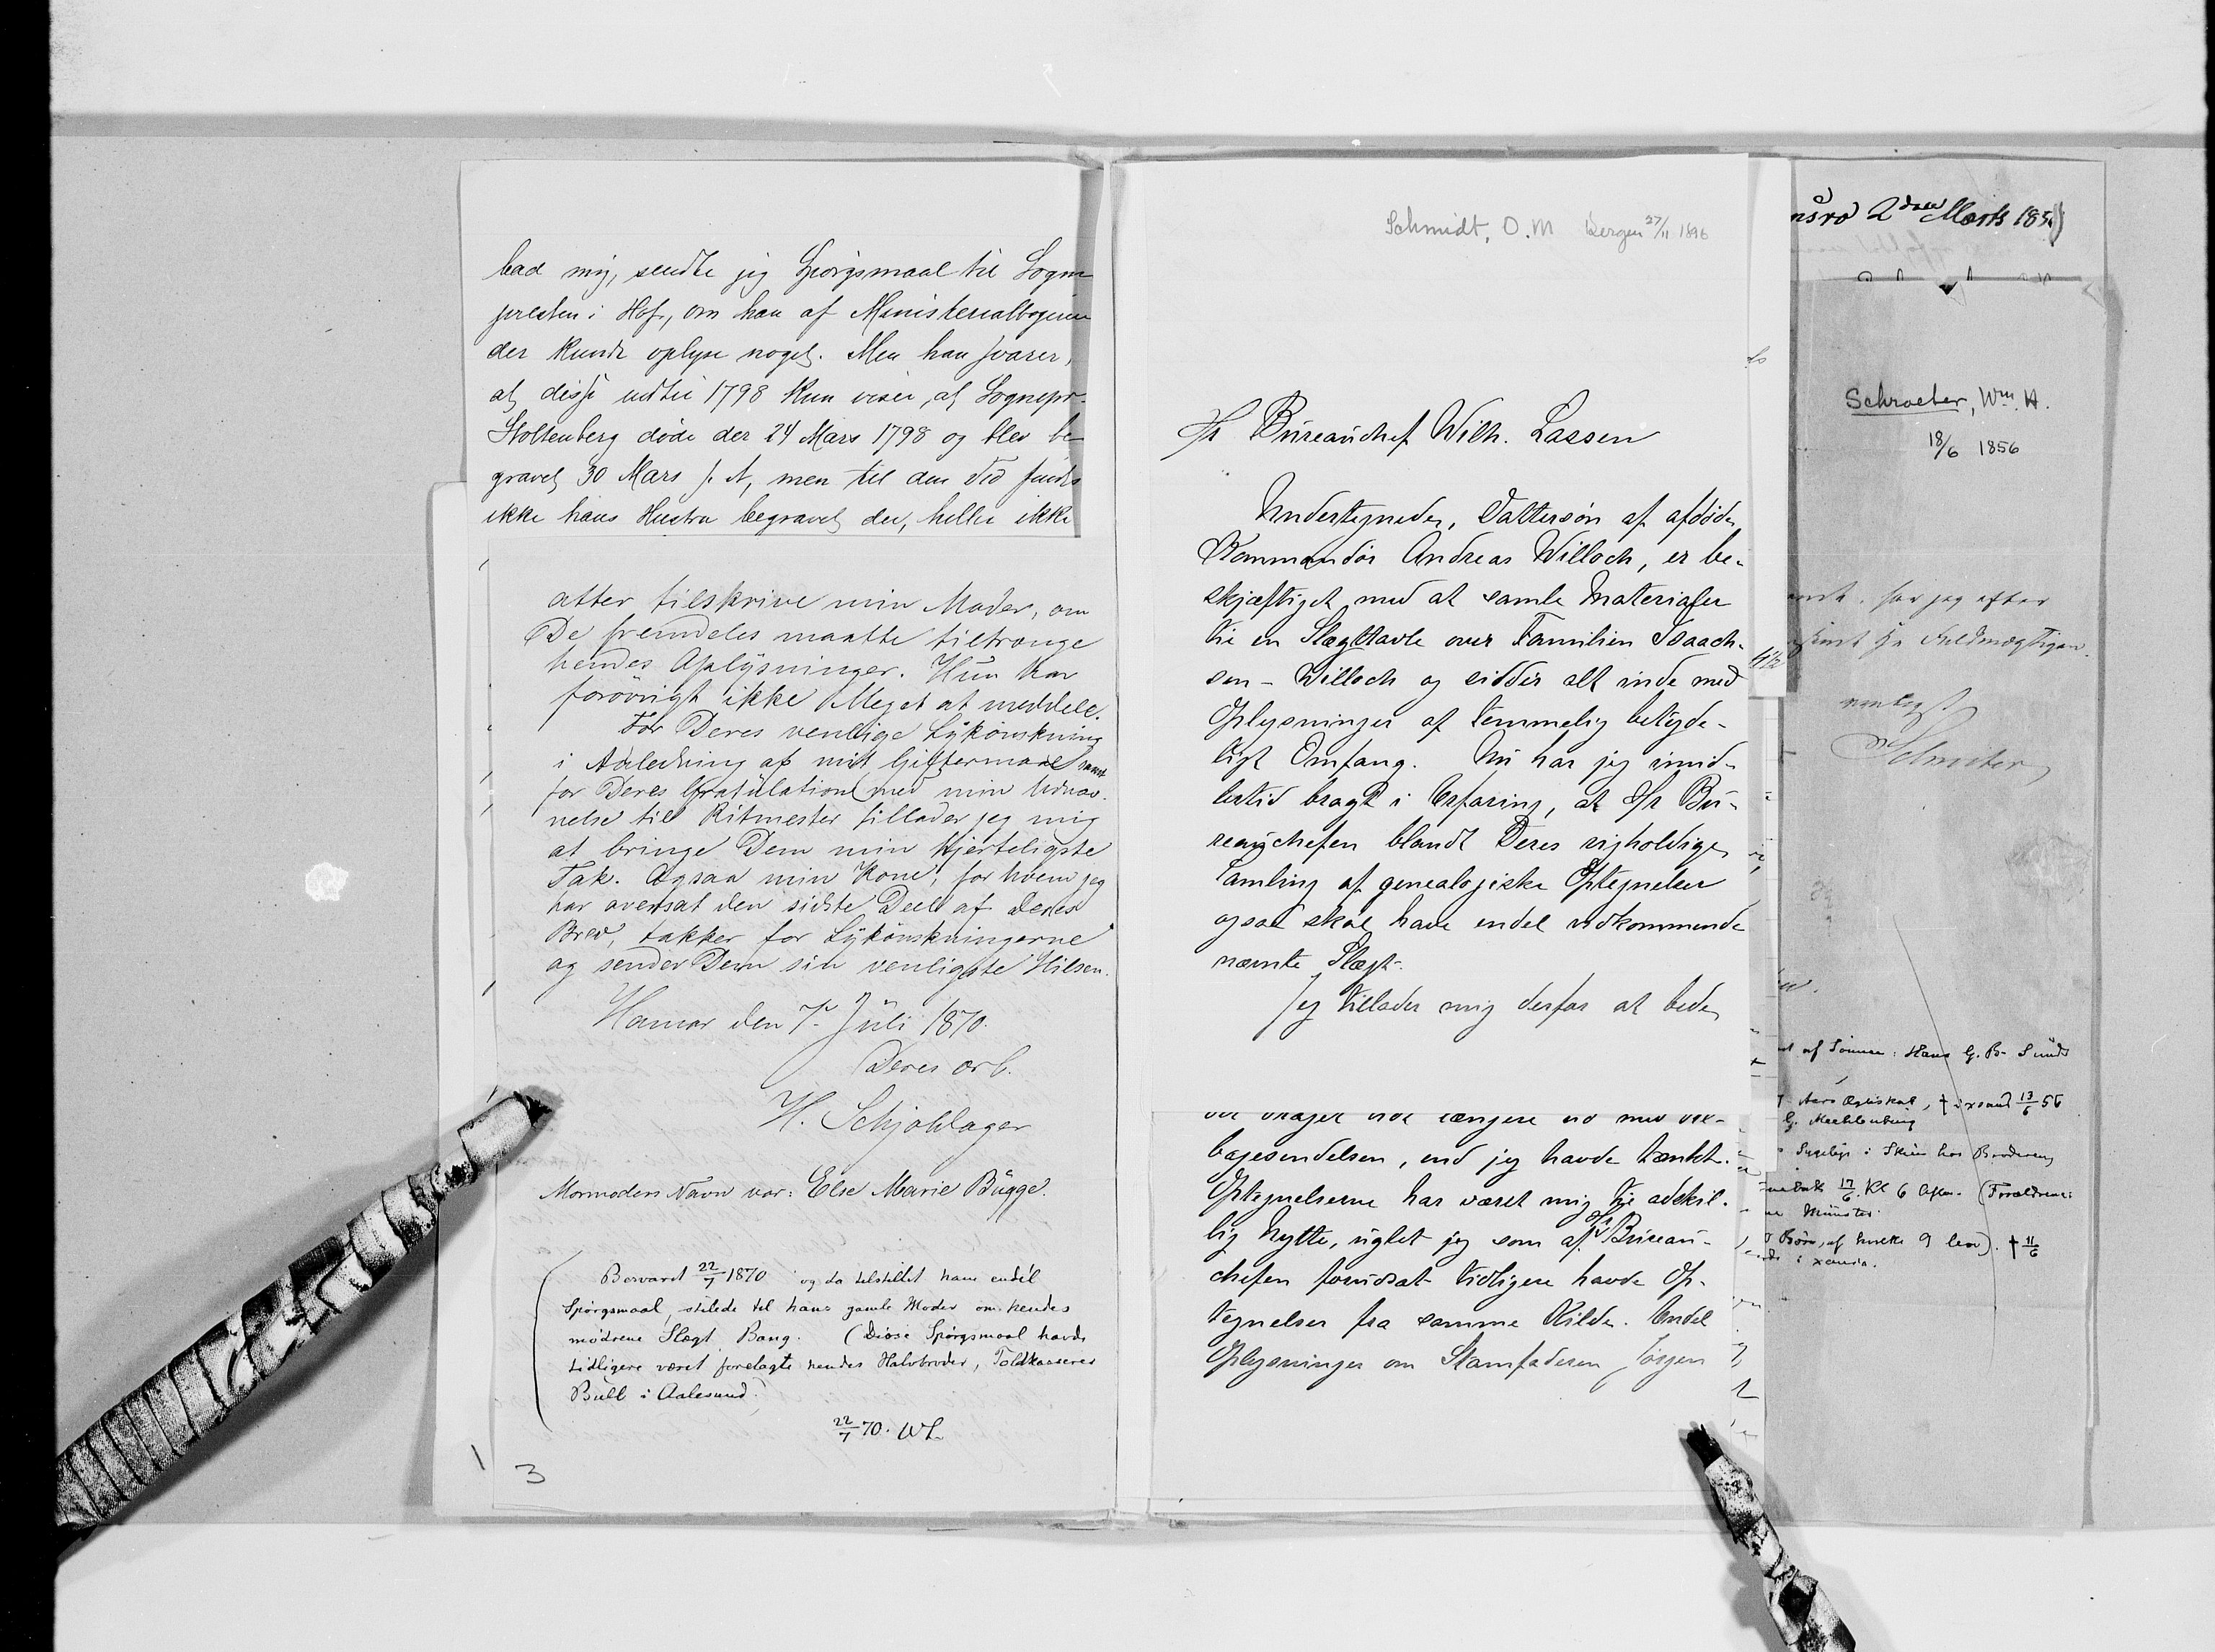 bad mig, sendte jeg Spörgsmaal til Sogne
presten i Hof, om han af Ministerialbogen
der kunde oplyse noget. Men han svarer,
at disse indtil 1798 kun viser, at Sognepr.
Stoltenberg döde der 24 Mars 1798 og blev be
gravet 30 Mars s. A, men til den Tid findes
ikke hans Hustru begravet der, heller ikke
atter tilskrive min Moder, om
De fremdeles maatte tiltrænge
hendes Oplysninger. Hun har
forövrigt ikke Meget at meddele.
For Deres venlige Lykönskning
i Anledning af mit Giftermaal samt
for Deres Gratulation med min Udnæv-
nelse til Ritmester tillader jeg mig
at bringe Dem min hjerteligste
Tak. Ogsaa min Kone, for hvem jeg
har oversat den sidste Deel af Deres
Brev, takker for Lykönskningerne
og sender Dem sin venligste Hilsen.
Hamar den 7. Juli 1870.
Deres erb.
H. Schjöhlager
Mormoders Navn var: Else Marie Bügge.
Besvaret 22/7 1870 og da tilstillet ham endel
Spörgsmaal, stilede til hans gamle Moder om hendes
mödrene Slægt Bang. (Disse Spörgsmaal havde
tidligere været forelagte hendes Halvbroder, Toldkasserer
Bull i Aalesund.
22/7 70. WL
3
Schmidt, O. M Bergen 27/11 1896
Hr Büreauchef Wilh. Lassen
Undertegnede, Dattersön af afdöde
Kommandör Andreas Willoch, er be-
skjæftiget med at samle Materialer
til en Slægttavle over Familien Isaach-
sen - Willoch og sidder alt inde med
Oplysninger af temmelig betyde-
ligt Omfang. Nu har jeg imid-
lertid bragt i Erfaring, at Hr Bü-
reauchefen blandt Deres righoldige
Samling af genealogiske Optegnelser
ogsaa skal have endel vedkommende
nævnte Slægt.
Jeg tillader mig derfor at bede
der drager ud længere ud med
bagesendelsen, end jeg havde tænkt.
Optegnelserne har været mig til adskil-
lig Nytte, uagtet jeg som af Hr Büreau-
chefen forudsat tidligere havde Op-
tegnelser fra samme Kilde. Endel
Oplysninger om Stamfaderen Jörgen
2den Marts 185
Schroeter, Wm. H.
18/6 1856
har jeg efter
Fuldmægtigen.
Schröter
af Sönnen: Hans G. B. Sünde
† 13/6 56
G. Mechlenburg
i Skien hos Broderen
17/6 Kl 6 Aften. (Forældrene:
Münster
Börn, af hvilke 9 lever). † 11/6